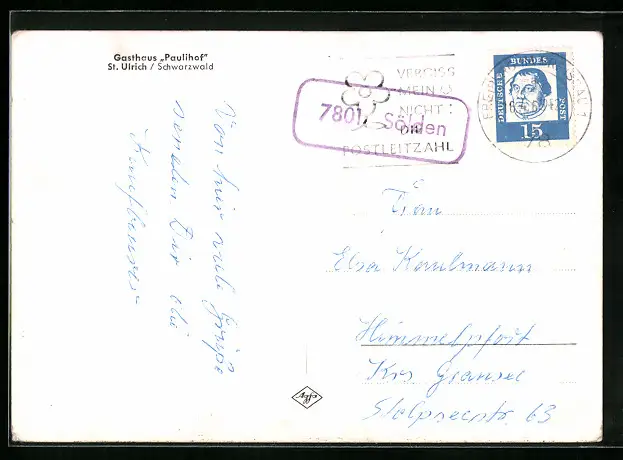 Gasthaus „Paulihof"
St. Ulrich / Schwarzwald
Von hier viele Grüße
senden Dir die
VERGISS
MEIN
NICHT
DIE
POSTLEITZAHL
7801 Sölden
DEUTSCHE BUNDESPOST
15
Frau
Elsa Kaulmann
Himmelpfort
Krs Gransee
Stolpseestr. 63
Agfa